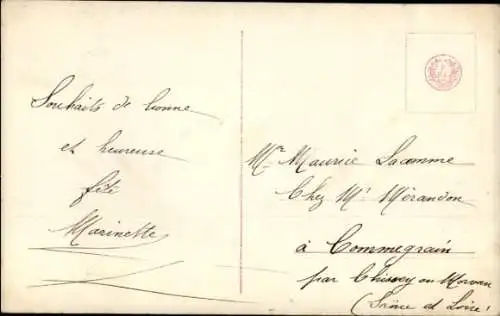 Souhaits de bonne
et heureuse
fête
Marinette
Mr Maurice Lacomme
Chez Mr Mérandon
à Commegrain
par Chissey en Morvan
(Saône et Loire)